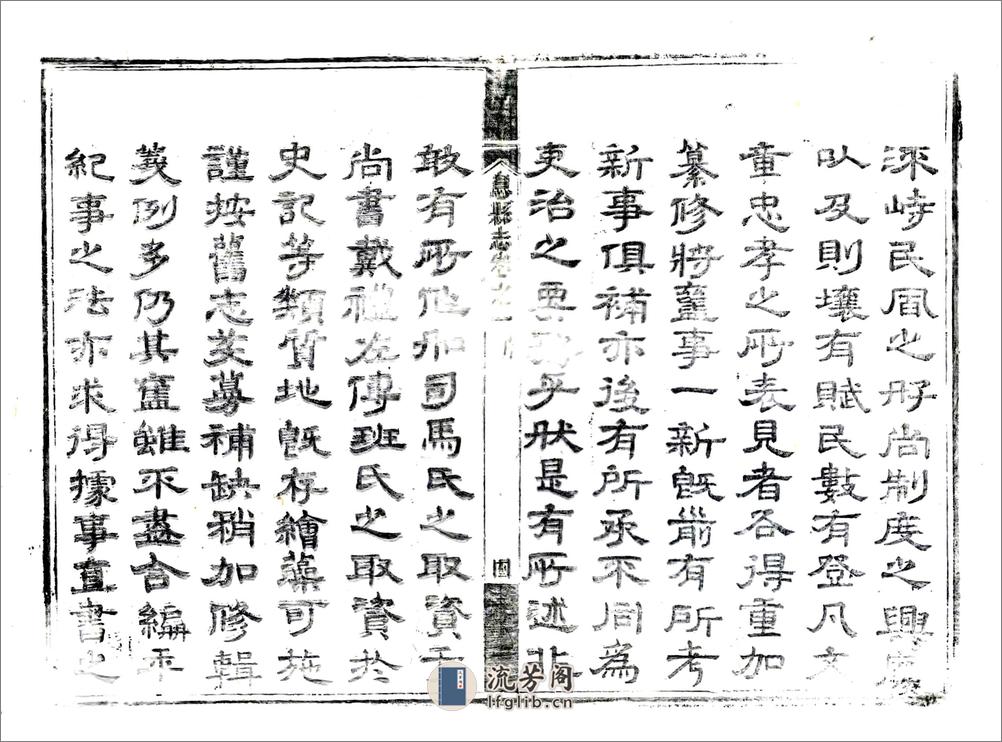 深峙民風之好尚制度之興廢
以及則壤有賦民數有登凡文
童忠孝之所表見者各得重加
纂修將舊事一新既前有所考
新事俱補亦後有所承不同為
吏治之要乎然是有所述非
息縣志卷之 四
敢有所作如司馬氏之取資于
尚書戴禮左傳班氏之取資於
史記等類質地既存繪藻可施
謹按舊志芟蕪補缺稍加修輯
義例多仍其舊雖不盡合編年
紀事之法亦求得據事直書之
流芳阁
lfglib.cn